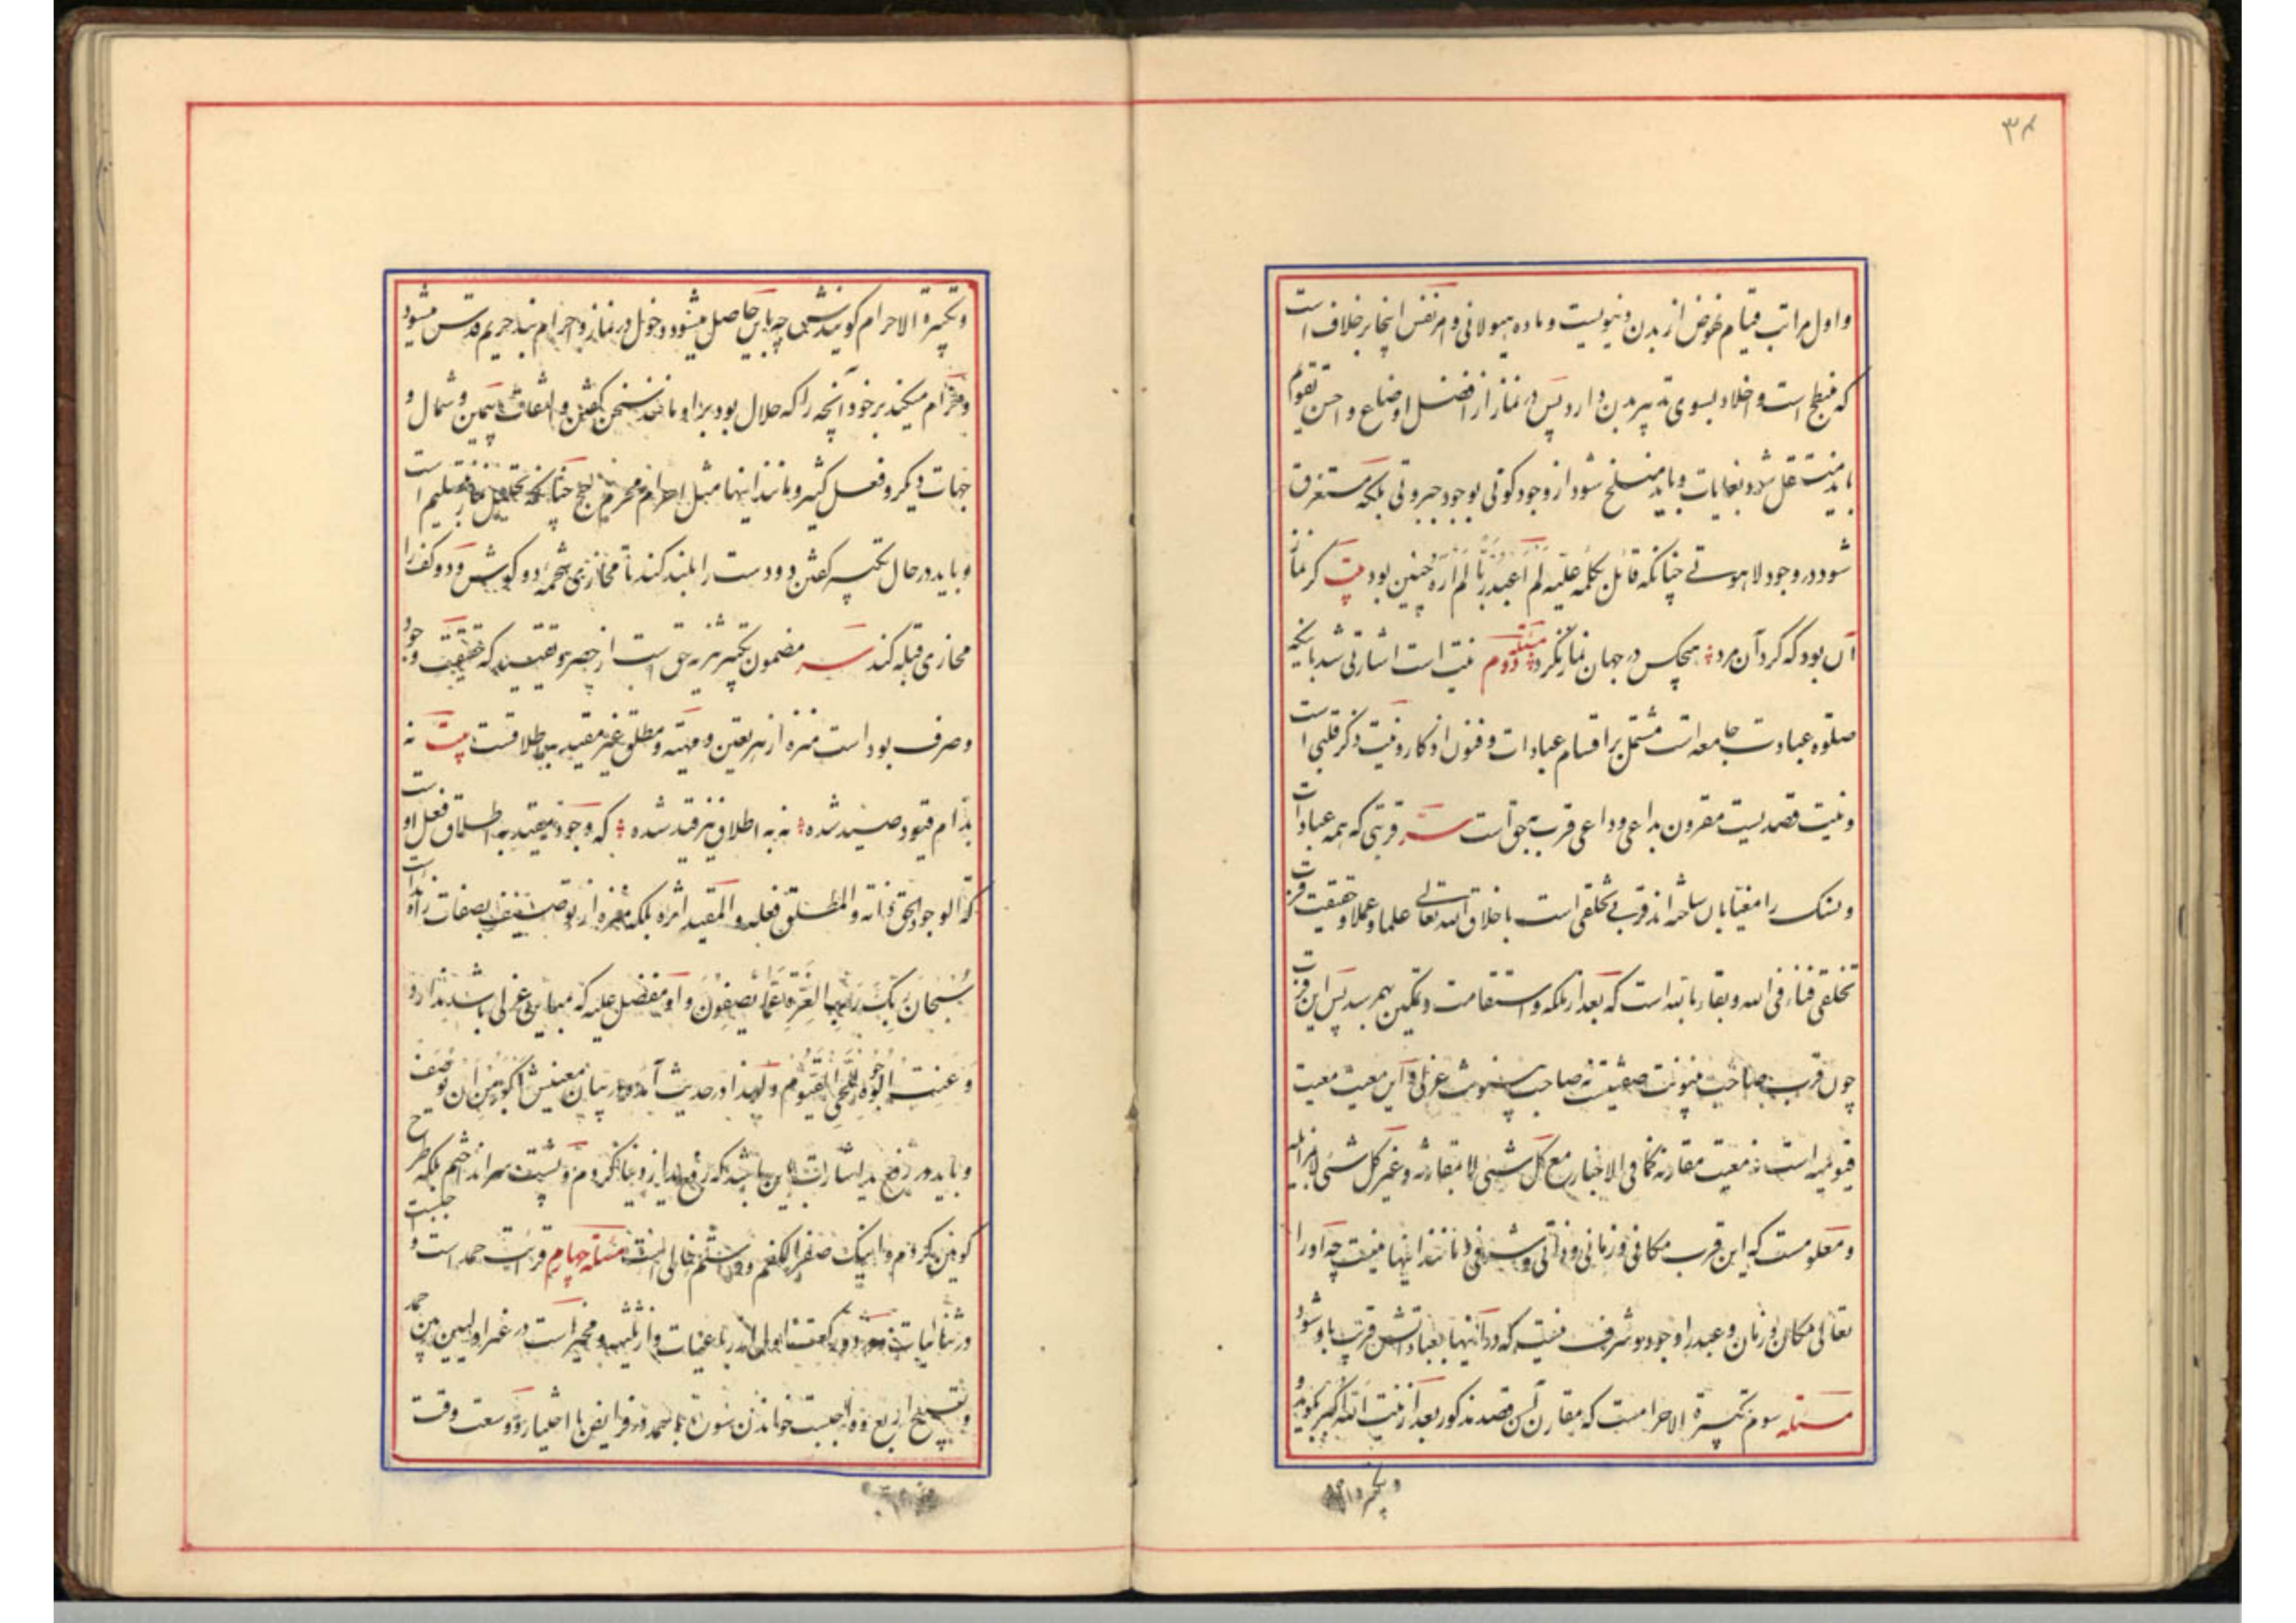 ۳۸
واول مراتب قیام نهوض از بدن دنیویست و ماده هیولانی و امر نفس اینجا بر خلاف است
که منبطح است و اخلاد بسوی تدبیر بدن دارد پس در نماز از افضل اوضاع و احسن تقویم
باید منتقل شود بغایات و باید منسلخ شود از وجود کونی بوجود جبروتی بلکه مستغرق
شود در وجود لاهوتے چنانکه قائل کلمه علیه لم اعبد ربا لم اره چنین بود بیت گر نماز
آن بود که کرد آن مرد هیچکس در جهان نماز نکرد مسئله دوم نیت است اشارتی شد باینکه
صلوه عبادت جامعه است مشتمل بر اقسام عبادات و فنون اذکار و نیت ذکر قلبی است
و نیت قصدیست مقرون بداعی و داعی قرب بحق است سر قربتی که همه عبادات
و نسک را مغیّا بآن ساخته اند قرب تخلقی است باخلاق الله تعالی علما و عملا و حقیقت قربت
تخلقی فناء فی الله و بقاء بالله است که بعد از ملکه و استقامت و تمکین بهم رسد پس این قربت
چون قرب صاحب بینونت صفتیست نه صاحب بینونت عزلی و این معیت معیت
قیومیه است نه معیت مقارنه کما فی الاخبار مع کل شیئی لا بمقارنة و غیر کل شیئی لا بمزایله
و معلومست که این قرب مکانی و زمانی و ذاتی و شرفی و مانند اینها نیست چه او را
تعالی مکان و زمان و عبد را وجود و شرف نیست که در اینها بعبادتش قرب باو شود
مسئله سوم تکبیرة الاحرامست که مقارن آن قصد مذکور بعد از نیت الله اکبر بگوید و
و تکبیره
و تکبیرة الاحرام گویندش چه باین حاصل میشود دخول در نماز و احرام بند حریم قدس میشود
و حرام میکند بر خود آنچه را که حلال بود بر او مانند سخن گفتن و التفات بیمین و شمال و
جهات دیگر و فعل کثیر و مانند اینها مثل احرام محرم بحج چنانکه تحلیل نماز تسلیم است
و باید در حال تکبیر گفتن دو دست را بلند کند تا محاذی شحمه دو گوش و دو کف را
محاذی قبله کند سر مضمون تکبیر تنزیه حق است از حصر و تقیید که حقیقت وجود
و صرف بود است منزه از هر تعین و مهیته و مطلق غیر مقید باطلاقست بیت نه
بدام قیود صید شده نه به اطلاق نیز قید شده که وجود مقید به اطلاق فعل اوست
که الوجود الحق ذاته والمطلق فعله والمقید اثره بلکه منزه از توصیف بصفات زائده است
سُبحان ربک رب العزة عما یصفون و او مفضل علیه که مباین عزلی باشد ندارد
وعنت الوجوه للحی القیوم و لهذا در حدیث آمده در بیان معنیش اکبر من ان یوصف
و باید در رفع ید اشارت باین باشد که رفع ید از دنیا کردم و پشت سر انداختم بلکه طرح
کونین کردم و اینک صفر الکفم و دستم خالی است مسئله چهارم قرائت حمد است و
در ثنائیات و در دو رکعت اولی از رباعیات و از ثلثیه و مخیر است در غیر اولیین بین حمد
و تسبیح اربع و واجبست خواندن سوره با حمد در فرایض با اختیار و وسعت وقت